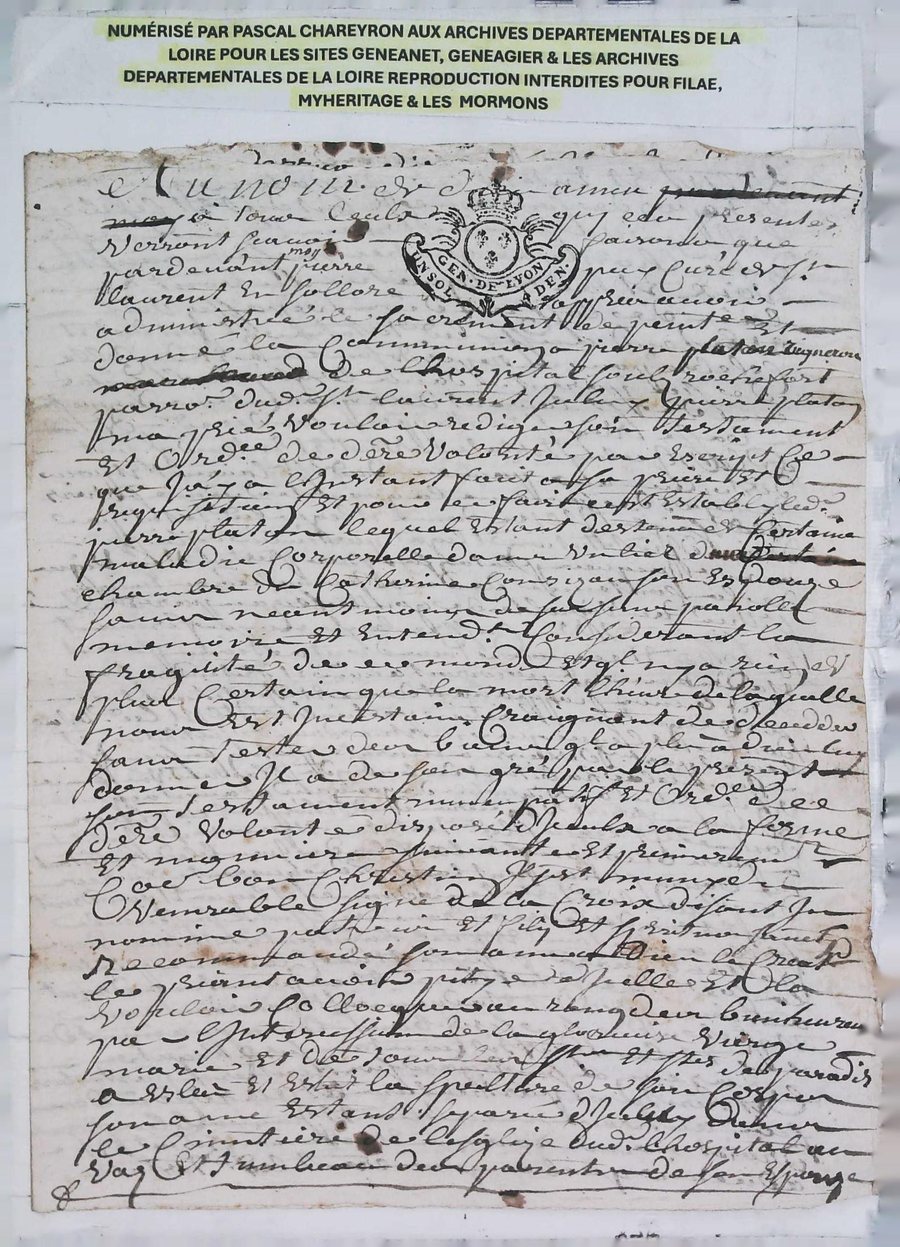 NUMÉRISÉ PAR PASCAL CHAREYRON AUX ARCHIVES DEPARTEMENTALES DE LA
LOIRE POUR LES SITES GENEANET, GENEAGIER & LES ARCHIVES
DEPARTEMENTALES DE LA LOIRE REPRODUCTION INTERDITES POUR FILAE,
MYHERITAGE & LES MORMONS
Au nom de dieu amen
a tous ceulx quy ces presentes
verront scavoir faisons que
pardevant moy pierre curé de St
laurent En sollore apres avoir
administré le sacrement de penitce Et
donné la Communion a pierre platon vigneron
de Lhospital soulz rochefort
parro. dud. St laurent Iceluy pierre platon
ma prié vouloir rediger son Testament
Et Ord.ce de dere Volonté par Escript Ce
que Jay a lInstant fait a sa priere Et
requisition Et pour ce faire cest Estably led.
pierre platon lequel Estant destenu de Certaine
maladie Corporelle dans un lict
chambre de Catherine son Espouze
sain neantmoins de ses sens parolle
memoire Et Entend.t Considerant la
fragilité de ce monde Et ql ny a rien
plus Certain que la mort lheure de laquelle
nous Est Incertaine Craignant de deceder
sans Tester des biens ql a plu a dieu luy
donner Il a de son gré par le present
son testament nuncupatif Et Ord.ce de
dere Volonté disposé dIceulx a la forme
Et maniere suivante Et premierem.
Coe bon Chrestien sest muny du
Venerable signe de la Croix disant In
nomine patris Et filij Et spiritus sancti
Recommandé son ame a Dieu le Creat.r
le priant avoir pitye dIcelle Et la
vouloir Collocquer au rang des bienheureux
par lIntercession de la glorieuse Vierge
marie Et de tous les Sts Et stes de paradis
a Esleu Et Eslit la sepulture de son Corps
son ame Estant separée dIceluy dans
le Cimetiere de lesglize dud. Lhospital au
Vas Et tumbeau des parents de son Espouze
GEN. DE LYON
UN SOL 4 DEN.